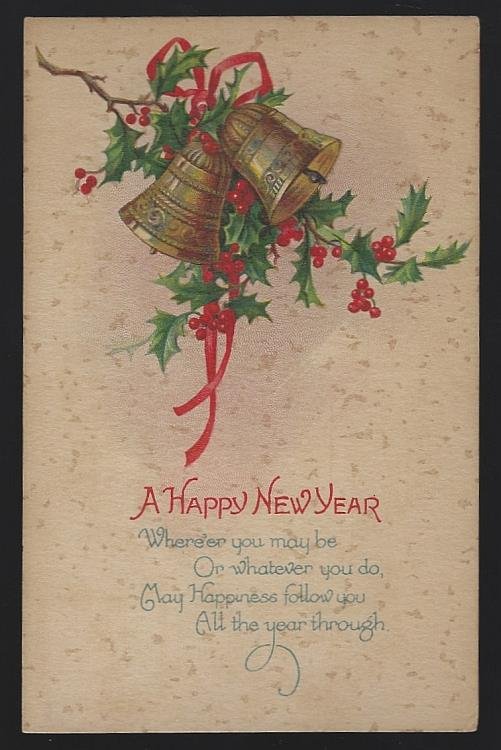 A Happy New Year
Where'er you may be
Or whatever you do,
May Happiness follow you
All the year through.